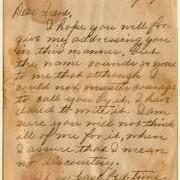 Dear Irene,
I hope you will for-
give my addressing you
in this manner, but
the name sounds so
to me that although I
could not muster courage
to call you by it, I have
dared to write it. I am
sure you will not think
ill of me for it, when
I assure that I mean
no discourtesy.